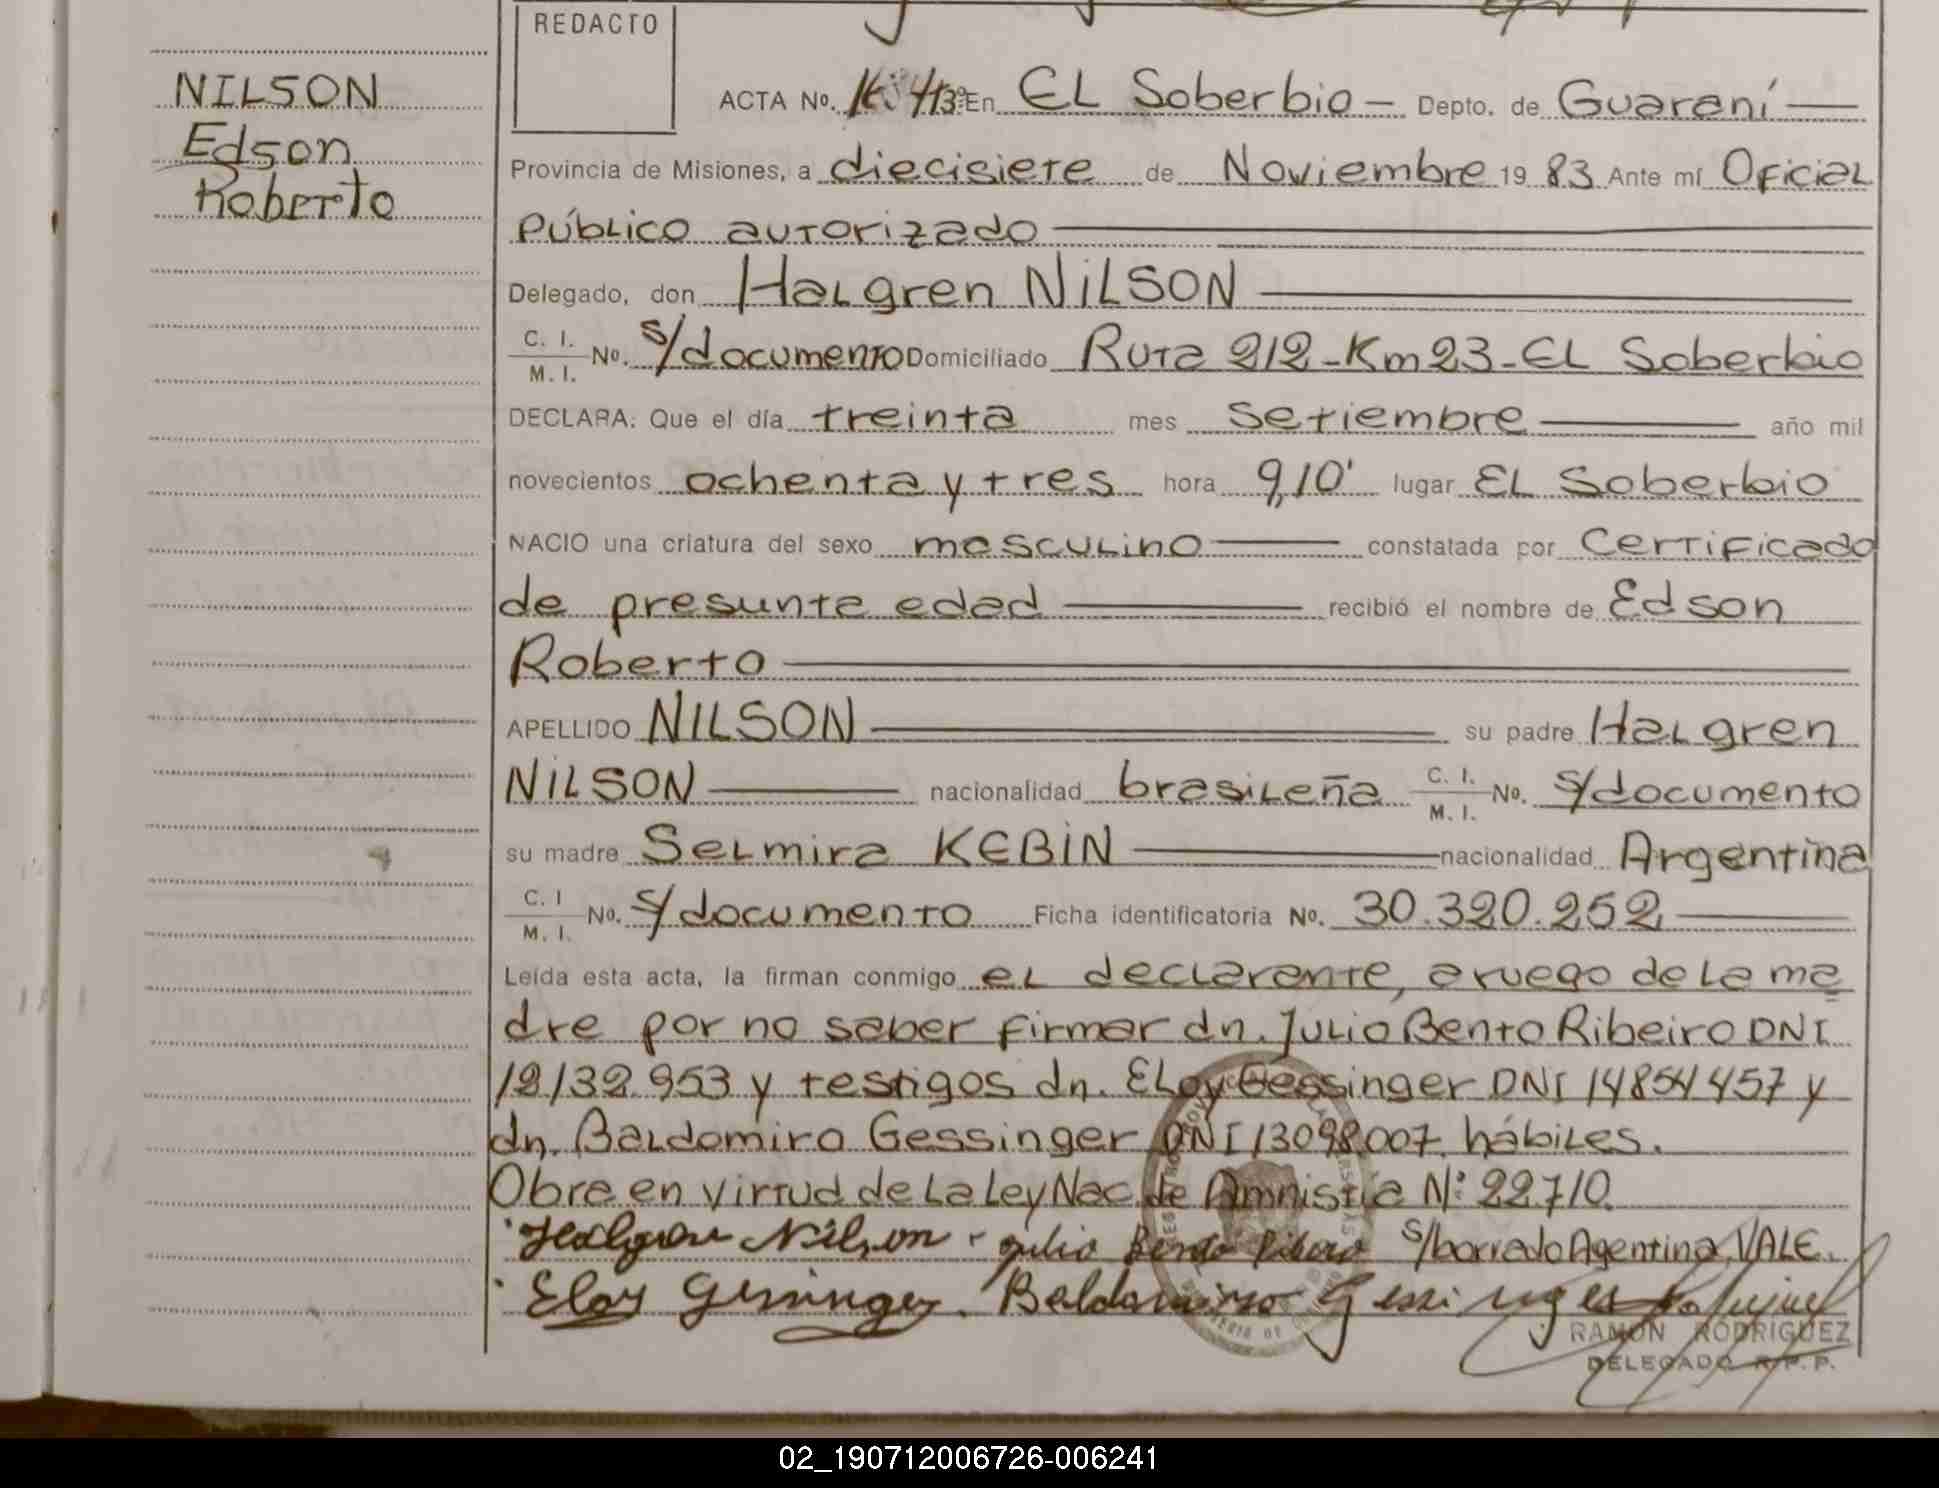 REDACTO
NILSON
Edson
Roberto
ACTA No. En EL Soberbio — Depto. de Guaraní —
Provincia de Misiones, a diecisiete de Noviembre 19 83 Ante mí Oficial
Público autorizado
Delegado, don Halgren NILSON
C. I. M. I. No. s/documento Domiciliado Ruta 212-Km 23-EL Soberbio
DECLARA: Que el día treinta mes Setiembre año mil
novecientos ochenta y tres hora 9,10' lugar EL Soberbio
NACIO una criatura del sexo masculino constatada por Certificado
de presunta edad recibió el nombre de Edson
Roberto
APELLIDO NILSON su padre Halgren
NILSON nacionalidad brasileña C. I. M. I. No. s/documento
su madre Selmira KEBIN nacionalidad Argentina
C. I M. I. No. s/documento Ficha identificatoria No. 30.320.252
Leída esta acta, la firman conmigo el declarante, a ruego de la ma
dre por no saber firmar dn. Julio Bento Ribeiro DNI
12132.953 y testigos dn. Eloy Gessinger DNI 14854457 y
dn. Baldomiro Gessinger DNI 13098007 hábiles.
Obra en virtud de la Ley Nac. de Amnistia Nº 22.710.
Halgren Nilson - Julio Bento Ribeiro s/borrado Agentina, VALE.
Eloy Gessinger. Baldomiro Gessinger
RAMON RODRIGUEZ
DELEGADO R.P.P.
02_190712006726-006241